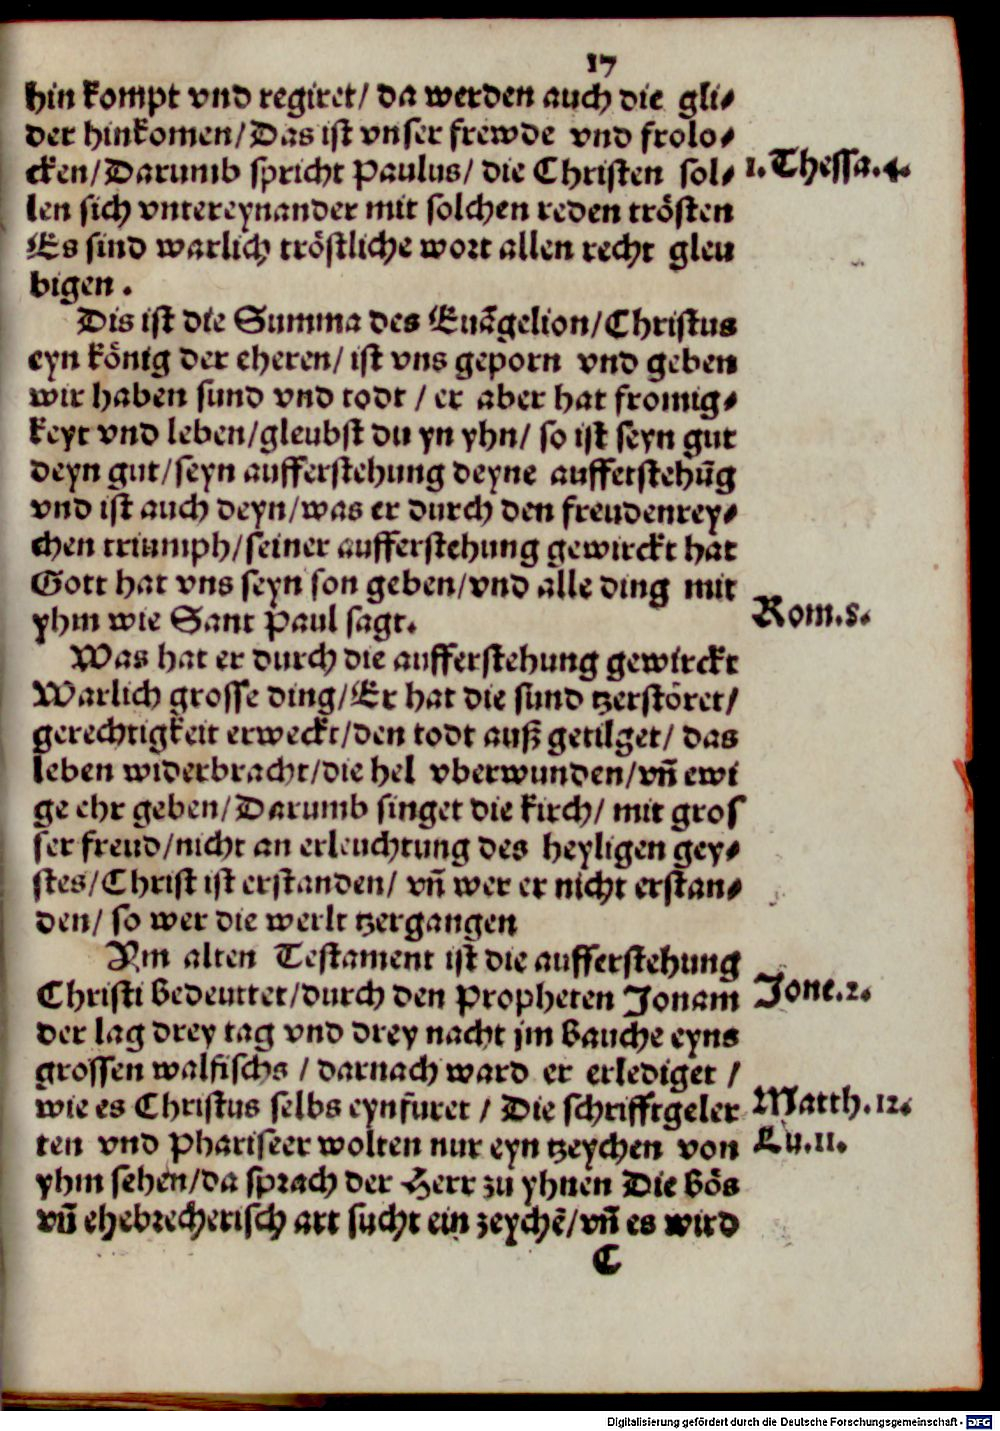 17
hin kompt vnd regiret/ da werden auch die gli⸗
der hinkomen/Das ist vnser frewde vnd frolo⸗
cken/Darumb spricht Paulus/ die Christen sol⸗
1.Thessa.4.
len sich vntereynander mit solchen reden trösten
Es sind warlich tröstliche wort allen recht gleu
bigen .
Dis ist die Summa des Euãgelion/Christus
eyn könig der eheren/ ist vns geporn vnd geben
wir haben sund vnd todt / er aber hat fromig⸗
keyt vnd leben/gleubst du yn yhn/ so ist seyn gut
deyn gut/seyn aufferstehung deyne aufferstehũg
vnd ist auch deyn/was er durch den freudenrey⸗
chen triumph/seiner aufferstehung gewirckt hat
Gott hat vns seyn son geben/vnd alle ding mit
yhm wie Sant Paul sagt.
Rom.8.
Was hat er durch die aufferstehung gewirckt
Warlich grosse ding/Er hat die sund tzerstöret/
gerechtigkeit erweckt/den todt auß getilget/ das
leben widerbracht/die hel vberwunden/vñ ewi
ge ehr geben/Darumb singet die kirch/ mit gros
ser freud/nicht an erleuchtung des heyligen gey⸗
stes/Christ ist erstanden/ vñ wer er nicht erstan⸗
den/ so wer die werlt tzergangen
Ym alten Testament ist die aufferstehung
Christi bedeuttet/durch den Propheten Jonam
Jone.2.
der lag drey tag vnd drey nacht jm bauche eyns
grossen walfischs / darnach ward er erlediget /
wie es Christus selbs eynfuret / Die schrifftgeler
Matth.12.
ten vnd Phariseer wolten nur eyn tzeychen von
Lu.11.
yhm sehen/da sprach der Herr zu yhnen Die bös
vñ ehebrecherisch art sucht ein zeychẽ/vñ es wird
C
Digitalisierung gefördert durch die Deutsche Forschungsgemeinschaft - DFG